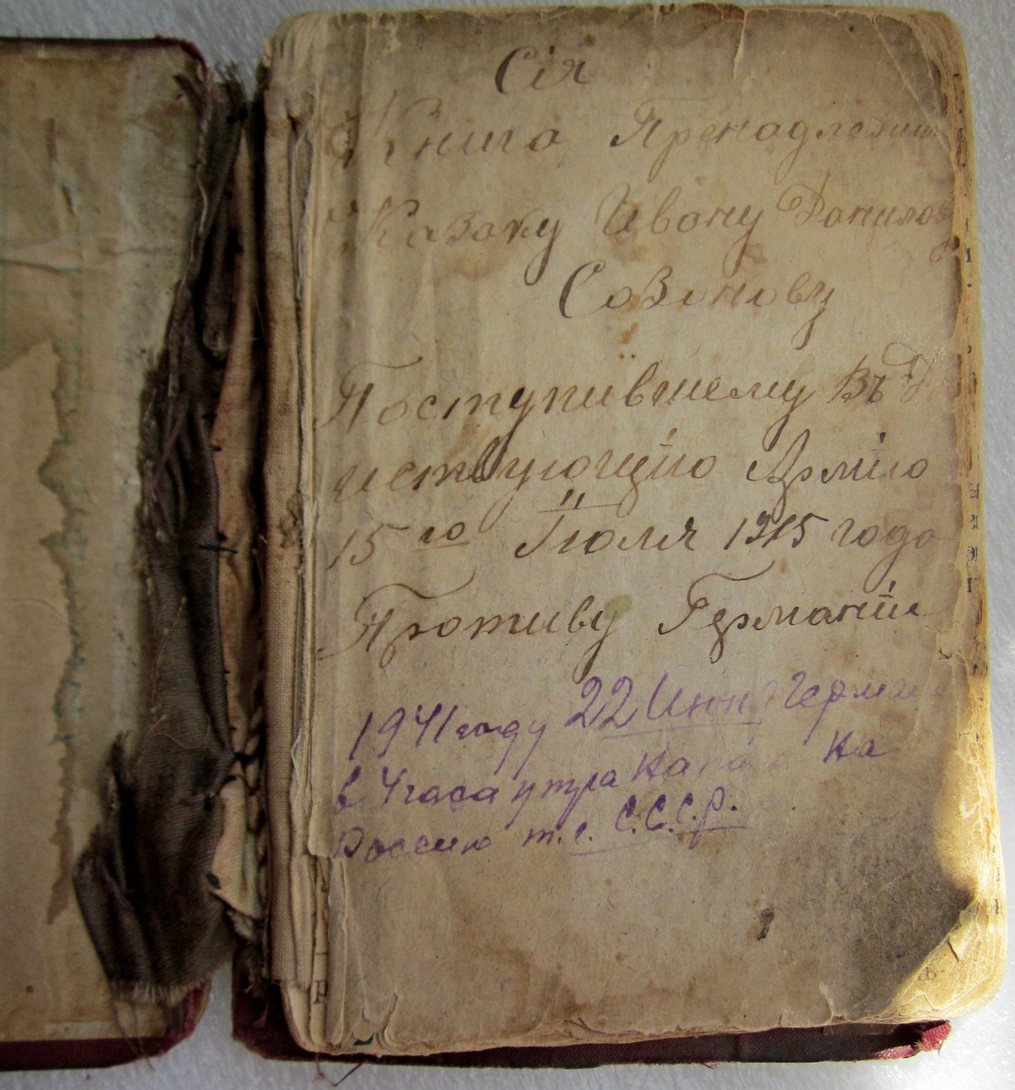 Сія
Книга Пренадлежит
Казаку Ивону Данилов
Созонову
Поступившему Въ Д
иствующію Армію
15го Іюля 1915 года
Противу Германіи
1941 году 22 Июн Герман
в 4 часа утра На
Россию т.е. С.С.С.Р.